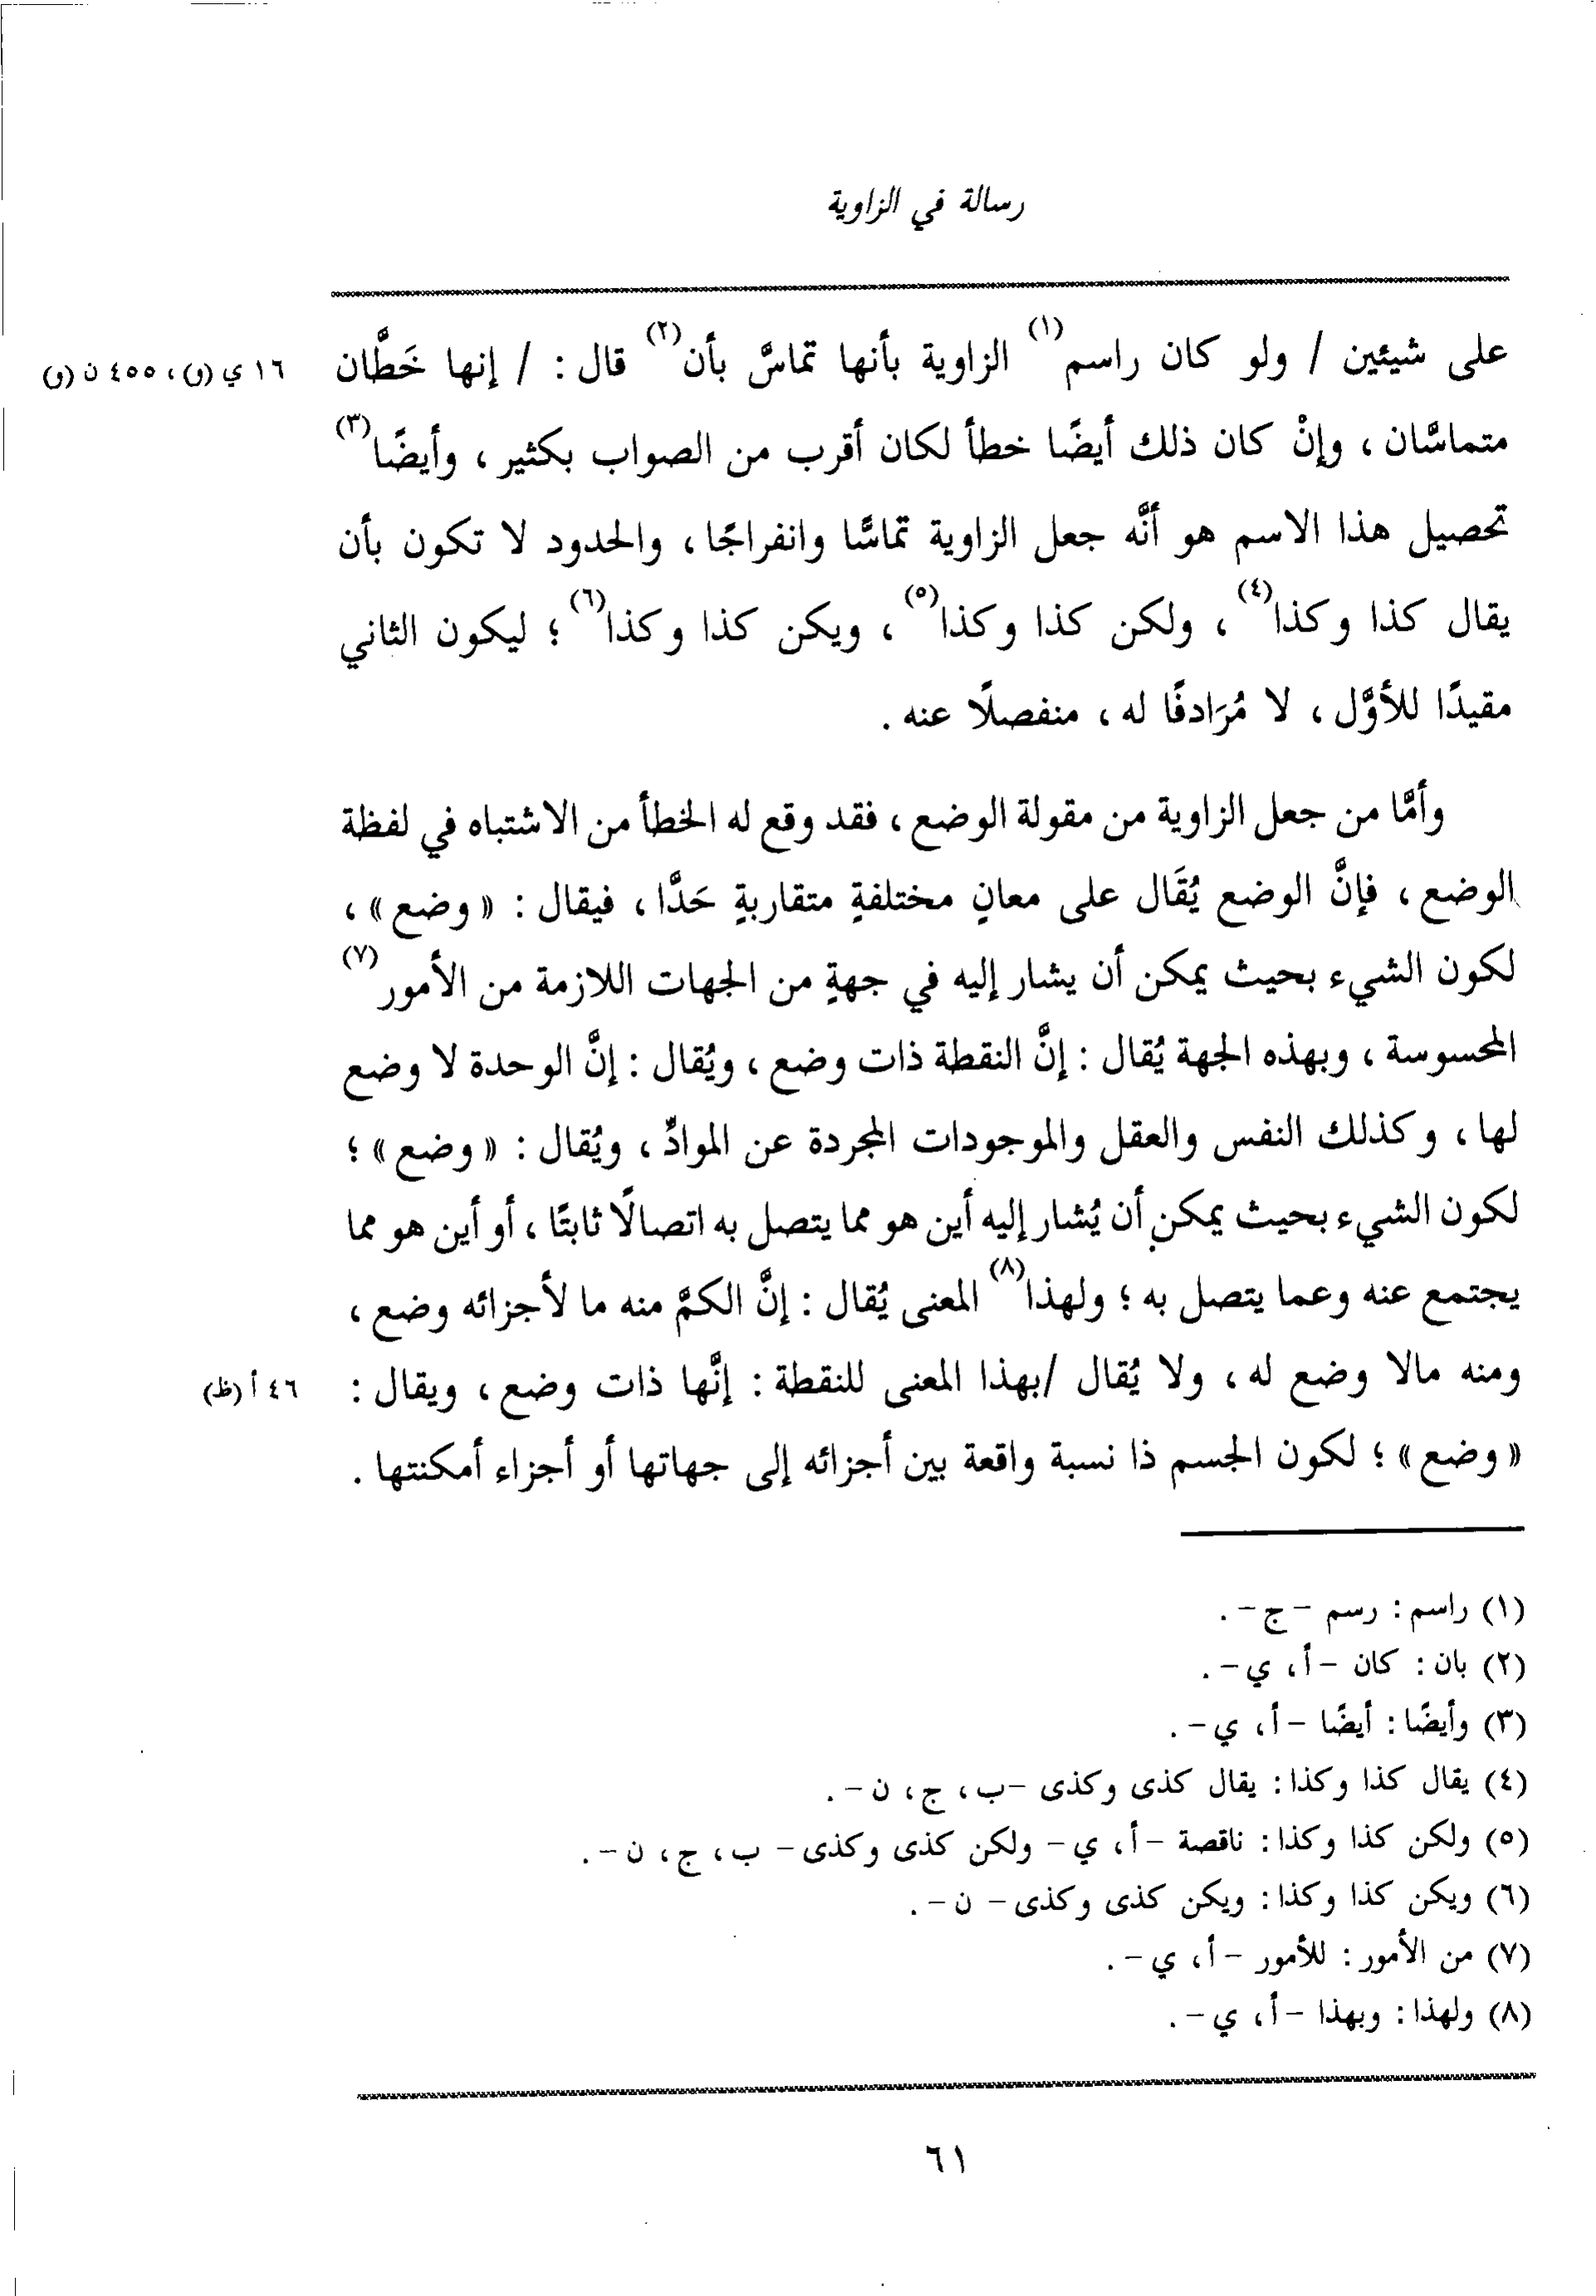 رسالة في الزاوية
على شيئين / ولو كان راسم(١) الزاوية بأنها تماسَّ بأن(٢) قال : / إنها خَطَّان
١٦ ي (و)، ٤٥٥ ن (و)
متماسَّان ، وإنْ كان ذلك أيضًا خطأ لكان أقرب من الصواب بكثير ، وأيضًا(٣)
تحصيل هذا الاسم هو أنَّه جعل الزاوية تماسًّا وانفراجًا ، والحدود لا تكون بأن
يقال كذا وكذا(٤) ، ولكن كذا وكذا(٥) ، ويكن كذا وكذا(٦) ؛ ليكون الثاني
مقيدًا للأوَّل ، لا مُرَادفًا له ، منفصلًا عنه .
وأمَّا من جعل الزاوية من مقولة الوضع ، فقد وقع له الخطأ من الاشتباه في لفظة
الوضع ، فإنَّ الوضع يُقَال على معانٍ مختلفةٍ متقاربةٍ حَدًّا ، فيقال : « وضع » ،
لكون الشيء بحيث يمكن أن يشار إليه في جهةٍ من الجهات اللازمة من الأمور(٧)
المحسوسة ، وبهذه الجهة يُقال : إنَّ النقطة ذات وضع ، ويُقال : إنَّ الوحدة لا وضع
لها ، وكذلك النفس والعقل والموجودات المجردة عن الموادِّ ، ويُقال : « وضع » ؛
لكون الشيء بحيث يمكن أن يُشار إليه أين هو مما يتصل به اتصالًا ثابتًا ، أو أين هو مما
يجتمع عنه وعما يتصل به ؛ ولهذا(٨) المعنى يُقال : إنَّ الكمَّ منه ما لأجزائه وضع ،
ومنه مالا وضع له ، ولا يُقال /بهذا المعنى للنقطة : إنَّها ذات وضع ، ويقال :
٤٦ أ (ظ)
« وضع » ؛ لكون الجسم ذا نسبة واقعة بين أجزائه إلى جهاتها أو أجزاء أمكنتها .
(١) راسم : رسم - ج - .
(٢) بان : كان - أ ، ي - .
(٣) وأيضًا : أيضًا - أ ، ي - .
(٤) يقال كذا وكذا : يقال كذى وكذى - ب ، ج ، ن - .
(٥) ولكن كذا وكذا : ناقصة - أ ، ي - ولكن كذى وكذى - ب ، ج ، ن - .
(٦) ويكن كذا وكذا : ويكن كذى وكذى - ن - .
(٧) من الأمور : للأمور - أ ، ي - .
(٨) ولهذا : وبهذا - أ ، ي - .
٦١